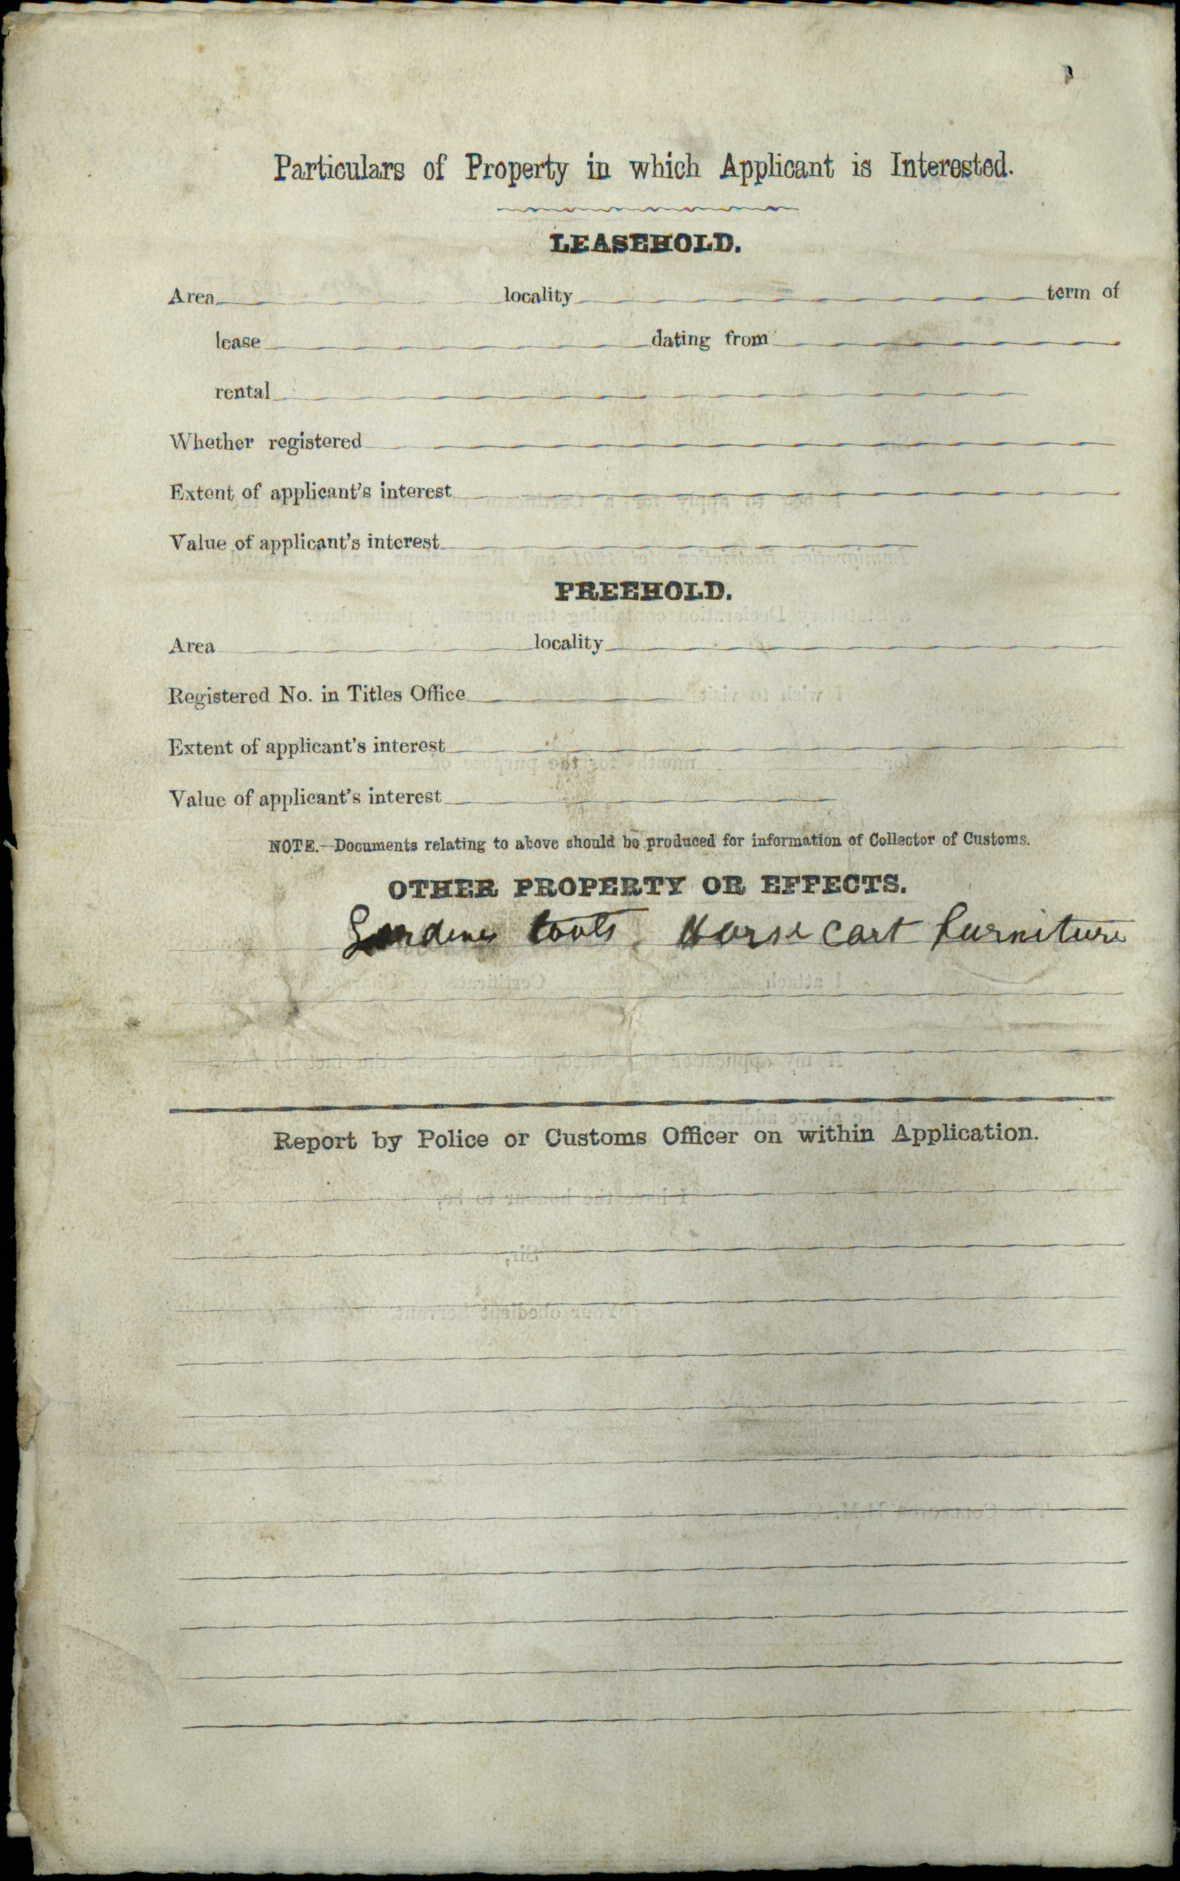 Particulars of Property in which Applicant is Interested.
LEASEHOLD.
Area locality term of
lease dating from
rental
Whether registered
Extent of applicant's interest
Value of applicant's interest
FREEHOLD.
Area locality
Registered No. in Titles Office
Extent of applicant's interest
Value of applicant's interest
NOTE.—Documents relating to above should be produced for information of Collector of Customs.
OTHER PROPERTY OR EFFECTS.
tools Horse cart furniture
Report by Police or Customs Officer on within Application.